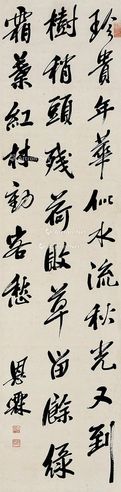 珍貴年華似水流秋光又到
樹梢頭殘荷敗草留餘綠
霜葉紅村動客愁
恩霖